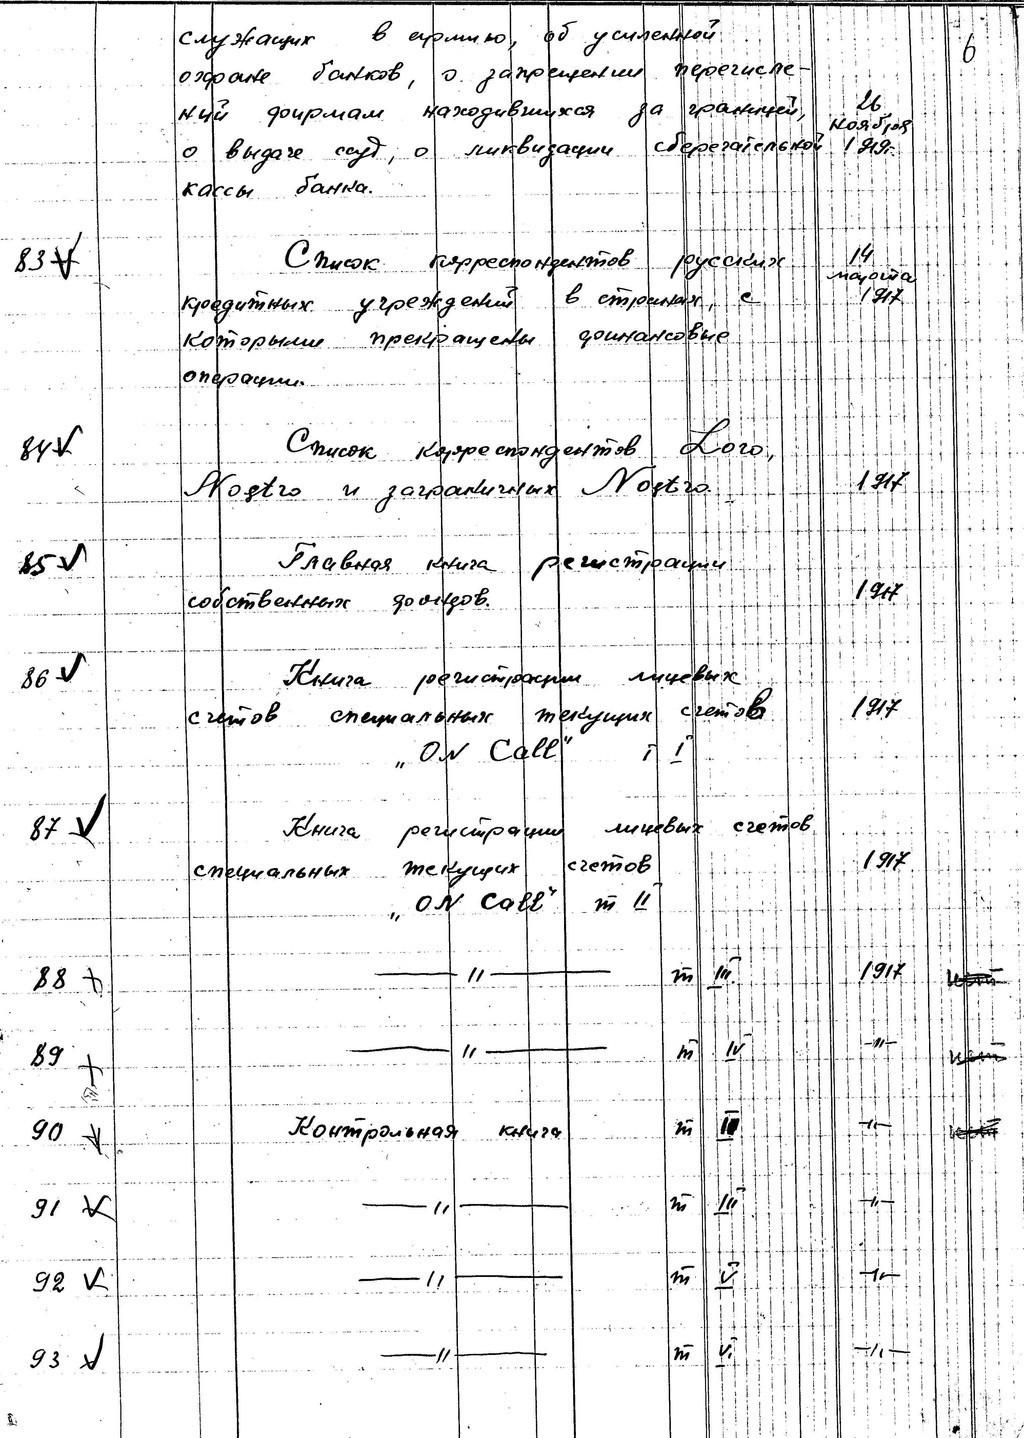 6
служащих в армию, об усиленной
охране банков, о запрещении перечисле-
ний фирмам находившихся за границей,
о выдаче ссуд, о ликвидации сберегательной
кассы банка.
26
ноября
1919.
83 Список корреспондентов русских
кредитных учреждений в странах, с
которыми прекращены финансовые
операции.
14
марта
1917
84 Список корреспондентов Loro,
Nostro и заграничных Nostro. 1917
85 Главная книга регистрации
собственных фондов. 1917
86 Книга регистрации лицевых
счетов специальных текущих счетов 1917
„ON Call" т I
87 Книга регистрации лицевых счетов
специальных текущих счетов 1917
„ON Call" т II
88 —〃— т III. 1917 нет
89 —〃— т IV —〃— нет
90 Контрольная книга т —〃— нет
91 —〃— т III —〃—
92 —〃— т V —〃—
93 —〃— т VI —〃—